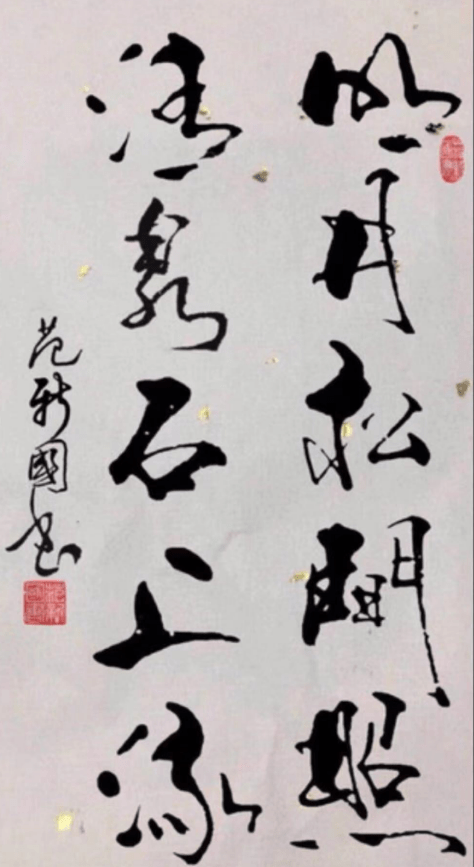 明月松間照
清泉石上流
范新國书